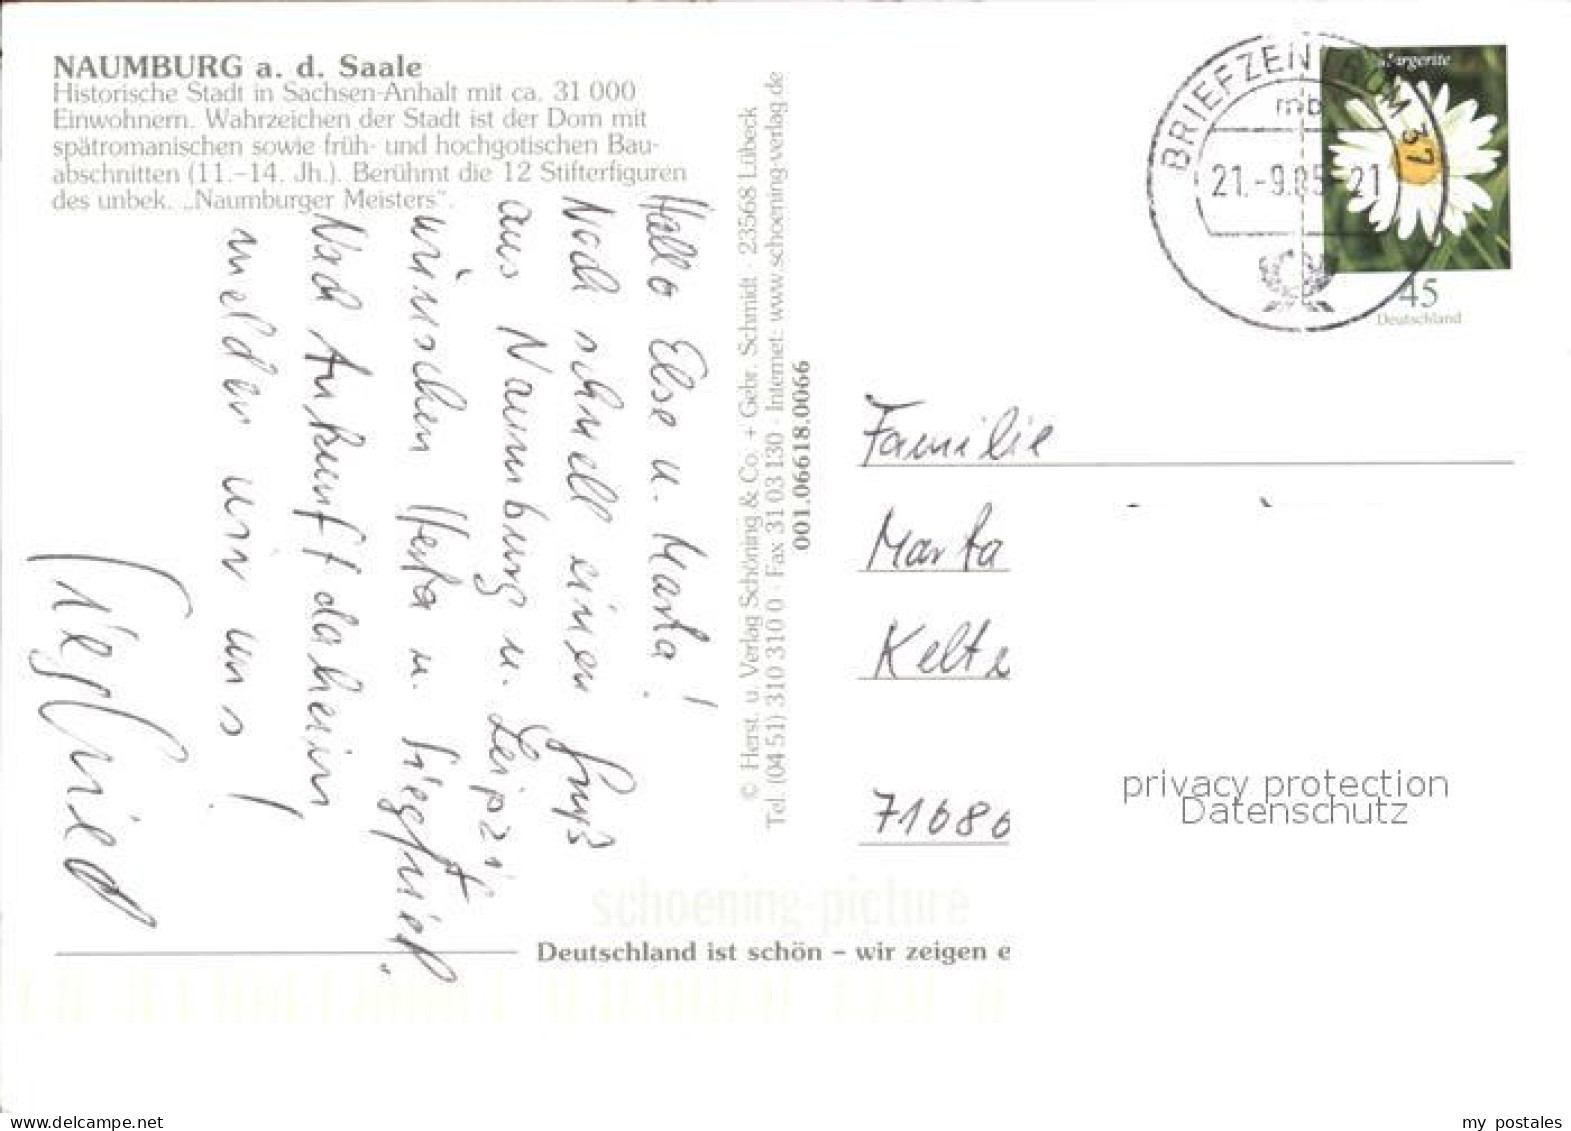 NAUMBURG a. d. Saale
Historische Stadt in Sachsen-Anhalt mit ca. 31 000
Einwohnern. Wahrzeichen der Stadt ist der Dom mit
spätromanischen sowie früh- und hochgotischen Bau-
abschnitten (11.–14. Jh.). Berühmt die 12 Stifterfiguren
des unbek. „Naumburger Meisters“.
Hallo Else u. Marta!
Noch schnell einen Gruß
aus Naumburg u. Leipzig
wünschen Herta u. Siegfried.
Nach Ankunft daheim
melden wir uns!
Siegfried
© Herst. u. Verlag Schöning & Co. + Gebr. Schmidt · 23568 Lübeck
Tel. (04 51) 310 310 0 · Fax 31 03 130 · Internet: www.schoening-verlag.de
001.06618.0066
BRIEFZENTRUM 37
mb
21.-9.05-21
Margerite
45
Deutschland
Familie
Marta
Kelte
71686
privacy protection
Datenschutz
schoening-picture
Deutschland ist schön – wir zeigen e
my postales
www.delcampe.net